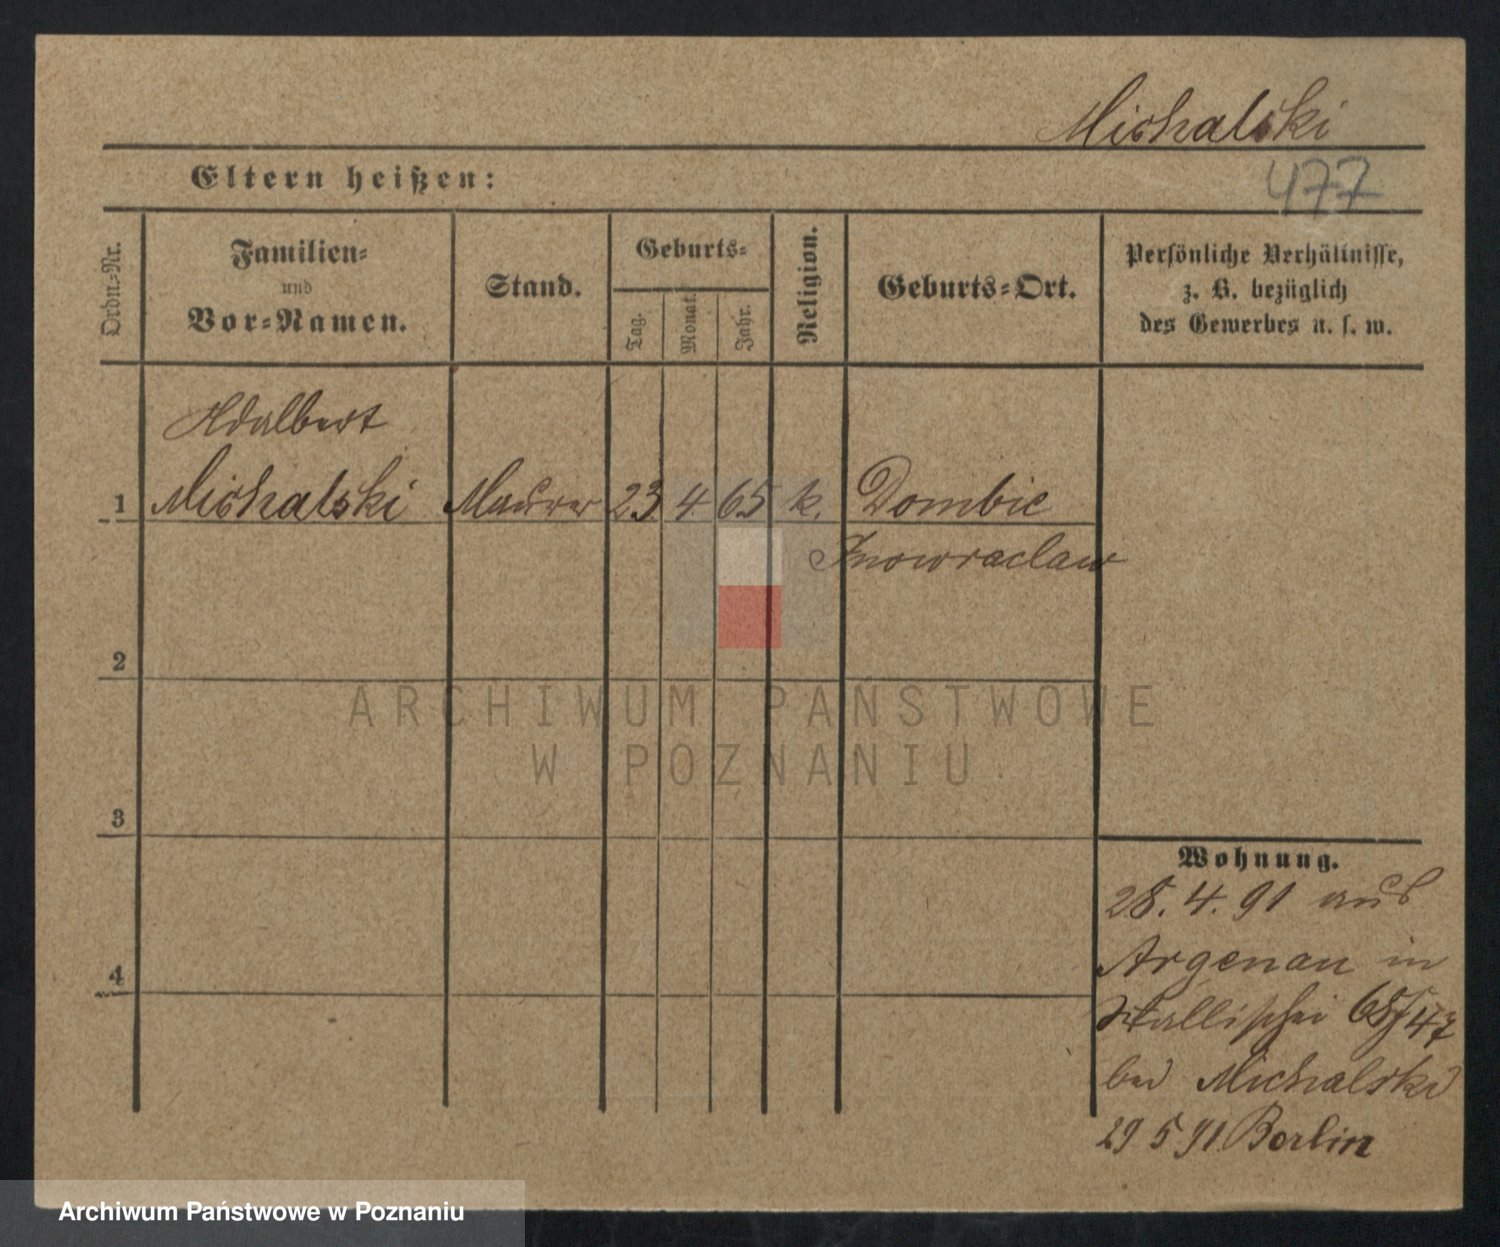 Michalski
Eltern heißen:
477
Ordn.=Nr.
Familien=
und
Vor=Namen.
Stand.
Geburts=
Tag.
Monat.
Jahr.
Religion.
Geburts=Ort.
Persönliche Verhältnisse,
z. B. bezüglich
des Gewerbes u. s. w.
Adalbert
1 Michalski Maurer 23 4 65 k. Dombie
Inowraclaw
2
ARCHIWUM PAŃSTWOWE
W POZNANIU
3
Wohnung.
28. 4. 91 aus
4
Argenau in
Wallischei 68/47
bei Michalski
29 5 91 Berlin
Archiwum Państwowe w Poznaniu